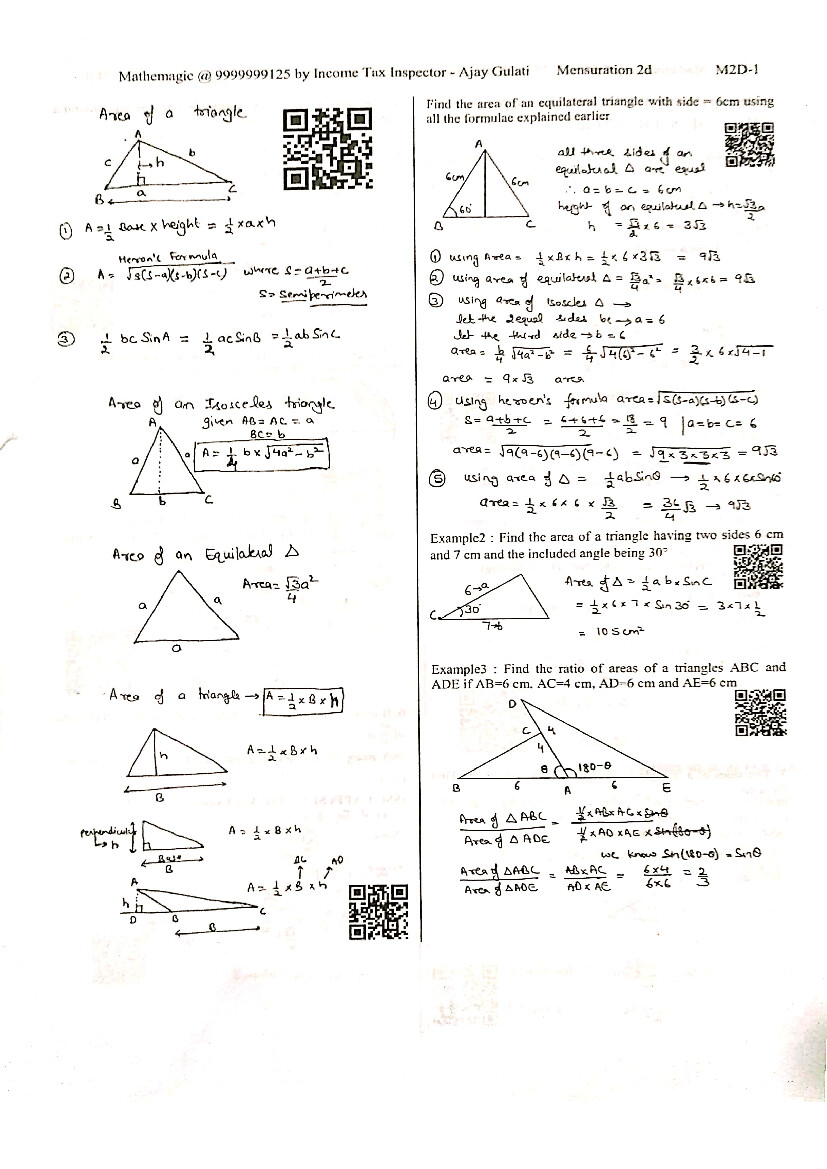 Mathemagic @ 9999999125 by Income Tax Inspector - Ajay Gulati Mensuration 2d M2D-1
Area of a triangle
A
c h b
a
B C
① A = 1/2 Base × height = 1/2 × a × h
Heron's Formula
② A = √s(s-a)(s-b)(s-c) where s = a+b+c/2
s = semiperimeter
③ 1/2 bc Sin A = 1/2 ac Sin B = 1/2 ab Sin C
Area of an Isosceles triangle
given AB = AC = a
BC = b
A
a a
A = 1/4 b × √4a² - b²
B b C
Area of an Equilateral Δ
Area = √3a²/4
a a
a
Area of a triangle → A = 1/2 × B × h
h
A = 1/2 × B × h
B
Perpendicular → h
A = 1/2 × B × h
Base
B
BC AD
A = 1/2 × B × h
A
h
D B C
B
Find the area of an equilateral triangle with side = 6cm using
all the formulae explained earlier
A
6cm 6cm
60°
B C
all three sides of an
equilateral Δ are equal
∴ a = b = c = 6cm
height of an equilateral Δ → h = √3a/2
h = √3/2 × 6 = 3√3
① using Area = 1/2 × B × h = 1/2 × 6 × 3√3 = 9√3
② using area of equilateral Δ = √3/4 a² = √3/4 × 6×6 = 9√3
③ using area of Isoscles Δ →
let the 2 equal sides be → a = 6
let the third side → b = 6
area = b/4 √4a² - b² = 6/4 √4(6)² - 6² = 3/2 × 6 × √4-1
area = 9 × √3 area
④ Using heroen's formula area = √s(s-a)(s-b)(s-c)
S = a+b+c/2 = 6+6+6/2 = 18/2 = 9 | a = b = c = 6
area = √9(9-6)(9-6)(9-6) = √9×3×3×3 = 9√3
⑤ using area of Δ = 1/2 ab Sinθ → 1/2 × 6 × 6 × Sin60°
area = 1/2 × 6 × 6 × √3/2 = 36/4 √3 → 9√3
Example2 : Find the area of a triangle having two sides 6 cm
and 7 cm and the included angle being 30°
6→a
C 30°
7→b
Area of Δ = 1/2 a b × Sin C
= 1/2 × 6 × 7 × Sin 30° = 3×7×1/2
= 10.5 cm²
Example3 : Find the ratio of areas of a triangles ABC and
ADE if AB=6 cm, AC=4 cm, AD=6 cm and AE=6 cm
D
C 4
4
θ 180-θ
B 6 A 6 E
Area of Δ ABC / Area of Δ ADE = 1/2 × AB × AC × Sinθ / 1/2 × AD × AE × Sin(180-θ)
we know Sin(180-θ) = Sinθ
Area of ΔABC / Area of ΔADE = AB×AC / AD×AE = 6×4 / 6×6 = 2/3